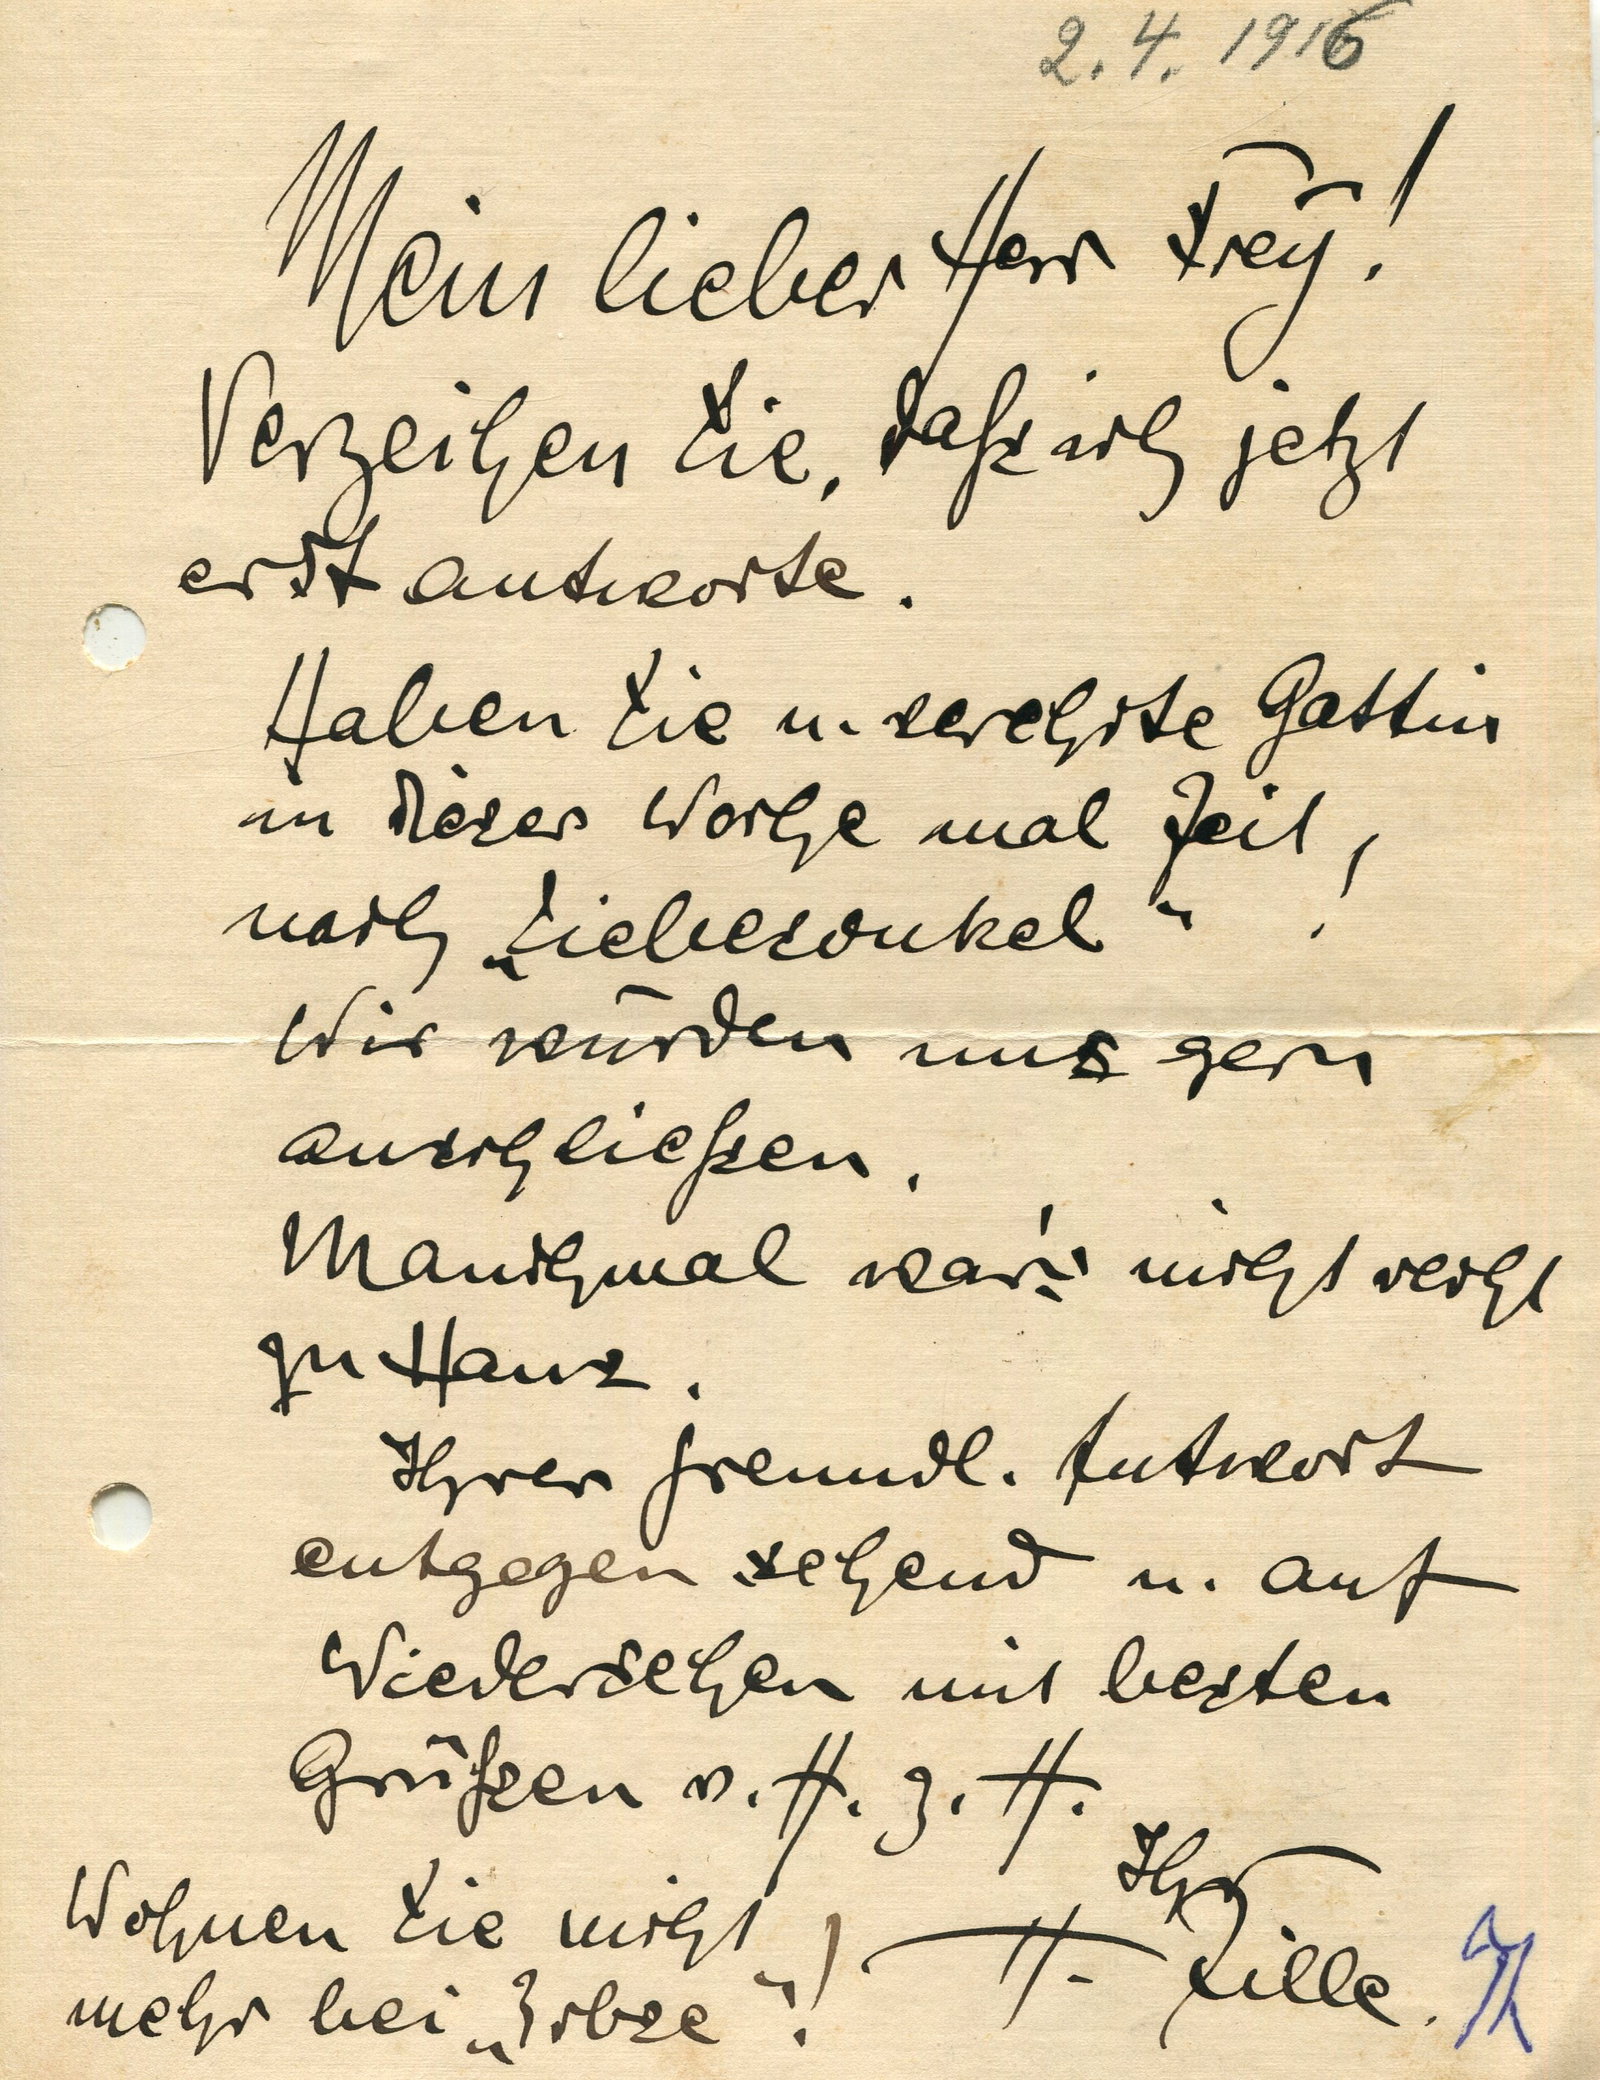 2. 4. 1916
Mein lieber Herr Frey!
Verzeihen Sie, dafs ich jetzt
erst antworte.
Haben Sie u. verehrte Gattin
in dieser Woche mal Zeit,
nach „Liebesonkel“!
Wir würden uns gern
anschliefsen.
Manchmal war's nicht recht
zu Haus.
Ihrer freundl. Antwort
entgegen sehend u. auf
Wiedersehen mit besten
Grüfsen v. H. z. H.
Ihr
H. Zille.
Wohnen Sie nicht
mehr bei „Erbse“!